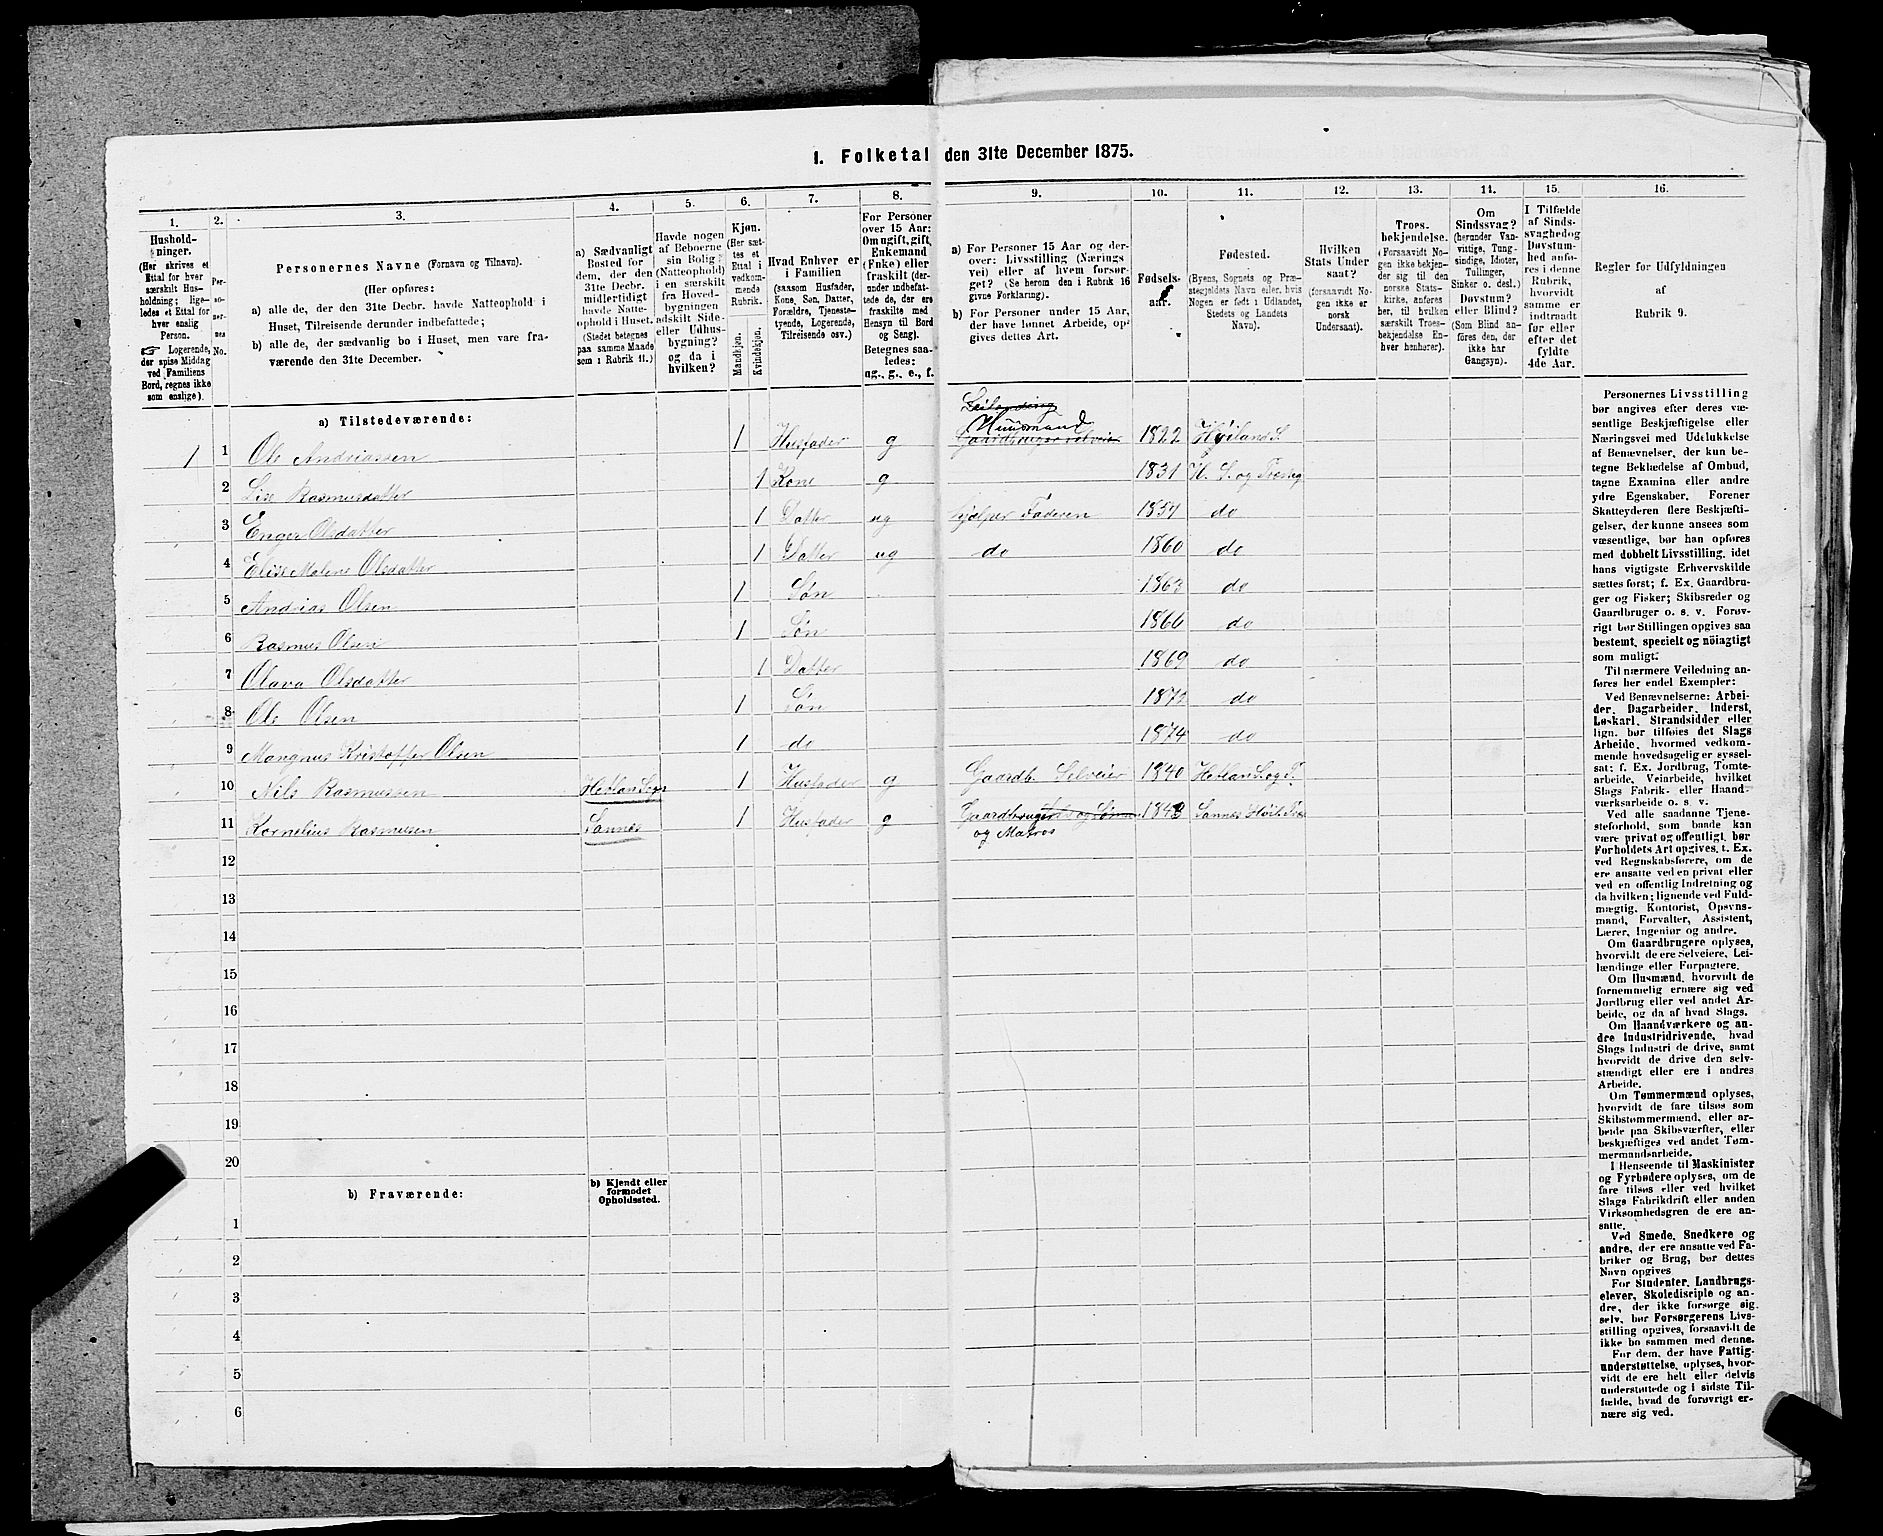 1. Folketal den 31te December 1875.
1. 2. 3. 4. 5. 6. 7. 8. 9. 10. 11. 12. 13. 14. 15. 16.
Hushold-
ninger.
(Her skrives et
Ettal for hver
særskilt Hus-
holdning; lige-
ledes et Ettal for
hver enslig
Person.
☞ Logerende,
der spise Middag
ved Familiens
Bord, regnes ikke
som enslige).
Per-
so-
ner-
nes
No.
Personernes Navne (Fornavn og Tilnavn).
(Her opføres:
a) alle de, der den 31te Decbr. havde Natteophold i
Huset, Tilreisende derunder indbefattede;
b) alle de, der sædvanlig bo i Huset, men vare fra-
værende den 31te December.
a) Sædvanligt
Bosted for
dem, der den
31te Decbr.
midlertidigt
havde Natte-
ophold i Huset.
(Stedet betegnes
paa samme Maade
som i Rubrik 11.)
Havde nogen
af Beboerne
sin Bolig
(Natteophold)
i en særskilt
fra Hoved-
bygningen
adskilt Side-
eller Udhus-
bygning?
og da i
hvilken?
Kjøn.
(Her sæt-
tes et
Ettal i
vedkom-
mende
Rubrik.
Mandkjøn.
Kvindekjøn.
Hvad Enhver er
i Familien
(saasom Husfader,
Kone, Søn, Datter,
Forældre, Tjeneste-
tyende, Logerende,
Tilreisende osv.)
For Personer
over 15 Aar:
Om ugift, gift,
Enkemand
(Enke) eller
fraskilt (der-
under indbefat-
tede de, der ere
fraskilte med
Hensyn til Bord
og Seng).
Betegnes saa-
ledes:
ug., g., e., f.
a) For Personer 15 Aar og der-
over: Livsstilling (Nærings
vei) eller af hvem forsør-
get? (Se herom den i Rubrik 16
givne Forklaring).
b) For Personer under 15 Aar,
der have lønnet Arbeide, op-
gives dettes Art.
Fødsels-
aar.
Fødested.
(Byens, Sognets og Præ-
stegjeldets Navn eller, hvis
Nogen er født i Udlandet,
Stedets og Landets
Navn).
Hvilken
Stats Under
saat?
(forsaavidt No-
gen ikke er
norsk
Undersaat).
Troes-
bekjendelse.
(Forsaavidt No-
gen ikke bekjen-
der sig til den
norske Stats-
kirke, anføres
her, til hvilken
særskilt Troes-
bekjendelse En-
hver henhører).
Om
Sindssvag?
(herunder Van-
vittige, Tung-
sindige, Idioter,
Tullinger,
Sinker o. desl.)
Døvstum?
eller Blind?
(Som Blind an-
føres den, der
ikke har
Gangsyn).
I Tilfælde
af Sinds-
svaghed og
Døvstum-
hed anfø-
res i denne
Rubrik,
hvorvidt
samme er
indtraadt
før eller
efter det
fyldte
4de Aar.
Regler for Udfyldningen
af
Rubrik 9.
a) Tilstedeværende:
Leilending
Huusmand
1 1 Ole Andriassen 1 Husfader g Gaardbruger selveier 1822 Høiland S.
2 Lise Rasmusdatter 1 Kone g 1831 H. S. og Præsteg
3 Enger Olsdatter 1 Datter ug hjælper Faderen 1857 do
4 Elise Malene Olsdatter 1 Datter ug do 1860 do
5 Andrias Olsen 1 Søn 1863 do
6 Rasmus Olsen 1 Søn 1866 do
7 Olava Olsdatter 1 Datter 1869 do
8 Ole Olsen 1 Søn 1872 do
9 Mangnus Kristoffer Olsen 1 do 1874 do
10 Nils Rasmussen Hetlan Sogn 1 Husfader g Gaardb. Selveier 1840 Hetlan S. og P.
11 Kornelius Rasmusen Sannes 1 Husfader g Gaardbruger og 1843 Sannes Høil. Præs
og Matros
12
13
14
15
16
17
18
19
20
b) Fraværende:
b) Kjendt eller
formodet
Opholdssted.
1
2
3
4
5
6
Personernes Livsstilling
bør angives efter deres væ-
sentlige Beskjæftigelse eller
Næringsvei med Udelukkelse
af Benævnelser, der kun be-
tegne Beklædelse af Ombud,
tagne Examina eller andre
ydre Egenskaber. Forener
Skatteyderen flere Beskjæfti-
gelser, der kunne ansees som
væsentlige, bør han opføres
med dobbelt Livsstilling, idet
hans vigtigste Erhvervskilde
sættes først; f. Ex. Gaardbru-
ger og Fisker; Skibsreder og
Gaardbruger o. s. v. Forøv-
rigt bør Stillingen opgives saa
bestemt, specielt og nöiagtigt
som muligt.
Til nærmere Veiledning an-
føres her endel Exempler:
Ved Benævnelserne: Arbei-
der, Dagarbeider, Inderst,
Løskarl, Strandsidder eller
lign. bør tilføies det Slags
Arbeide, hvormed vedkom-
mende hovedsagelig er syssel-
sat; f. Ex. Jordbrug, Tomte-
arbeide, Veiarbeide, hvilket
Slags Fabrik- eller Haand-
værksarbeide o. s. v.
Ved alle saadanne Tjene-
steforhold, som baade kan
være privat og offentligt, bør
Forholdets Art opgives, t. Ex.
ved Regnskabsførere, om de
ere ansatte ved en privat eller
ved en offentlig Indretning og
da hvilken; lignende ved Fuld-
mægtig, Kontorist, Opsyns-
mand, Forvalter, Assistent,
Lærer, Ingeniør og andre.
Om Gaardbrugere oplyses,
hvorvidt de ere Selveiere, Lei-
lændinge eller Forpagtere.
Om Husmænd, hvorvidt de
fornemmelig ernære sig ved
Jordbrug eller ved andet Ar-
beide, og da af hvad Slags.
Om Haandværkere og an-
dre Industridrivende, hvad
Slags Industri de drive, samt
hvorvidt de drive den selv-
stændigt eller ere i andres
Arbeide.
Om Tømmermænd oplyses,
hvorvidt de fare tilsøs som
Skibstømmermænd, eller ar-
beide paa Skibsværfter, eller
beskjæftiges ved andet Tøm-
mermandsarbeide.
I Henseende til Maskinister
og Fyrbødere oplyses, om de
fare tilsøs eller ved hvilket
Slags Fabrikdrift eller anden
Virksomhedsgren de ere an-
satte.
Ved Smede, Snedkere og
andre, der ere ansatte ved Fa-
briker og Brug, bør dettes
Navn opgives
For Studenter, Landbrugs-
elever, Skoledisciple og an-
dre, der ikke forsørge sig
selv, bør Forsørgerens Livs-
stilling opgives, forsaavidt de
ikke bo sammen med denne.
For dem, der have Fattig-
understøttelse, oplyses, hvor-
vidt de ere helt eller delvis
understøttede og i sidste Til-
fælde, hvad de forøvrigt er-
nære sig ved.